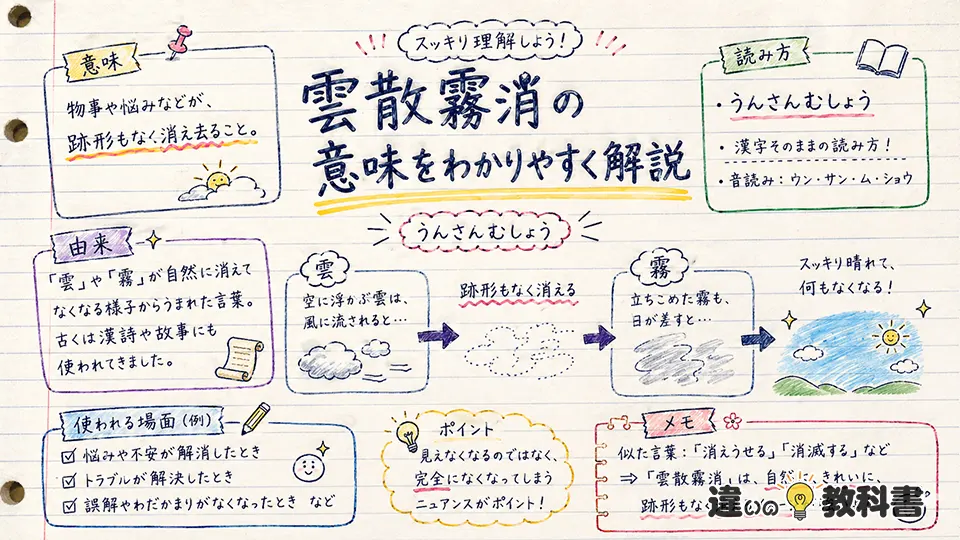 スッキリ理解しよう!
雲散霧消の
意味をわかりやすく解説
うんさんむしょう
意味
物事や悩みなどが、
跡形もなく消え去ること。
読み方
・うんさんむしょう
・漢字そのままの読み方!
・音読み:ウン・サン・ム・ショウ
由来
「雲」や「霧」が自然に消えて
なくなる様子からうまれた言葉。
古くは漢詩や故事にも
使われてきました。
雲
空に浮かぶ雲は、
風に流されると…
跡形もなく消える
霧
立ちこめた霧も、
日が差すと…
スッキリ晴れて、
何もなくなる!
使われる場面(例)
悩みや不安が解消したとき
トラブルが解決したとき
誤解やわだかまりがなくなったとき など
ポイント
見えなくなるのではなく、
完全になくなってしまう
ニュアンスがポイント!
メモ
似た言葉:「消えうせる」「消滅する」など
⇒「雲散霧消」は、自然に、きれいに、
跡形もな
違いの教科書